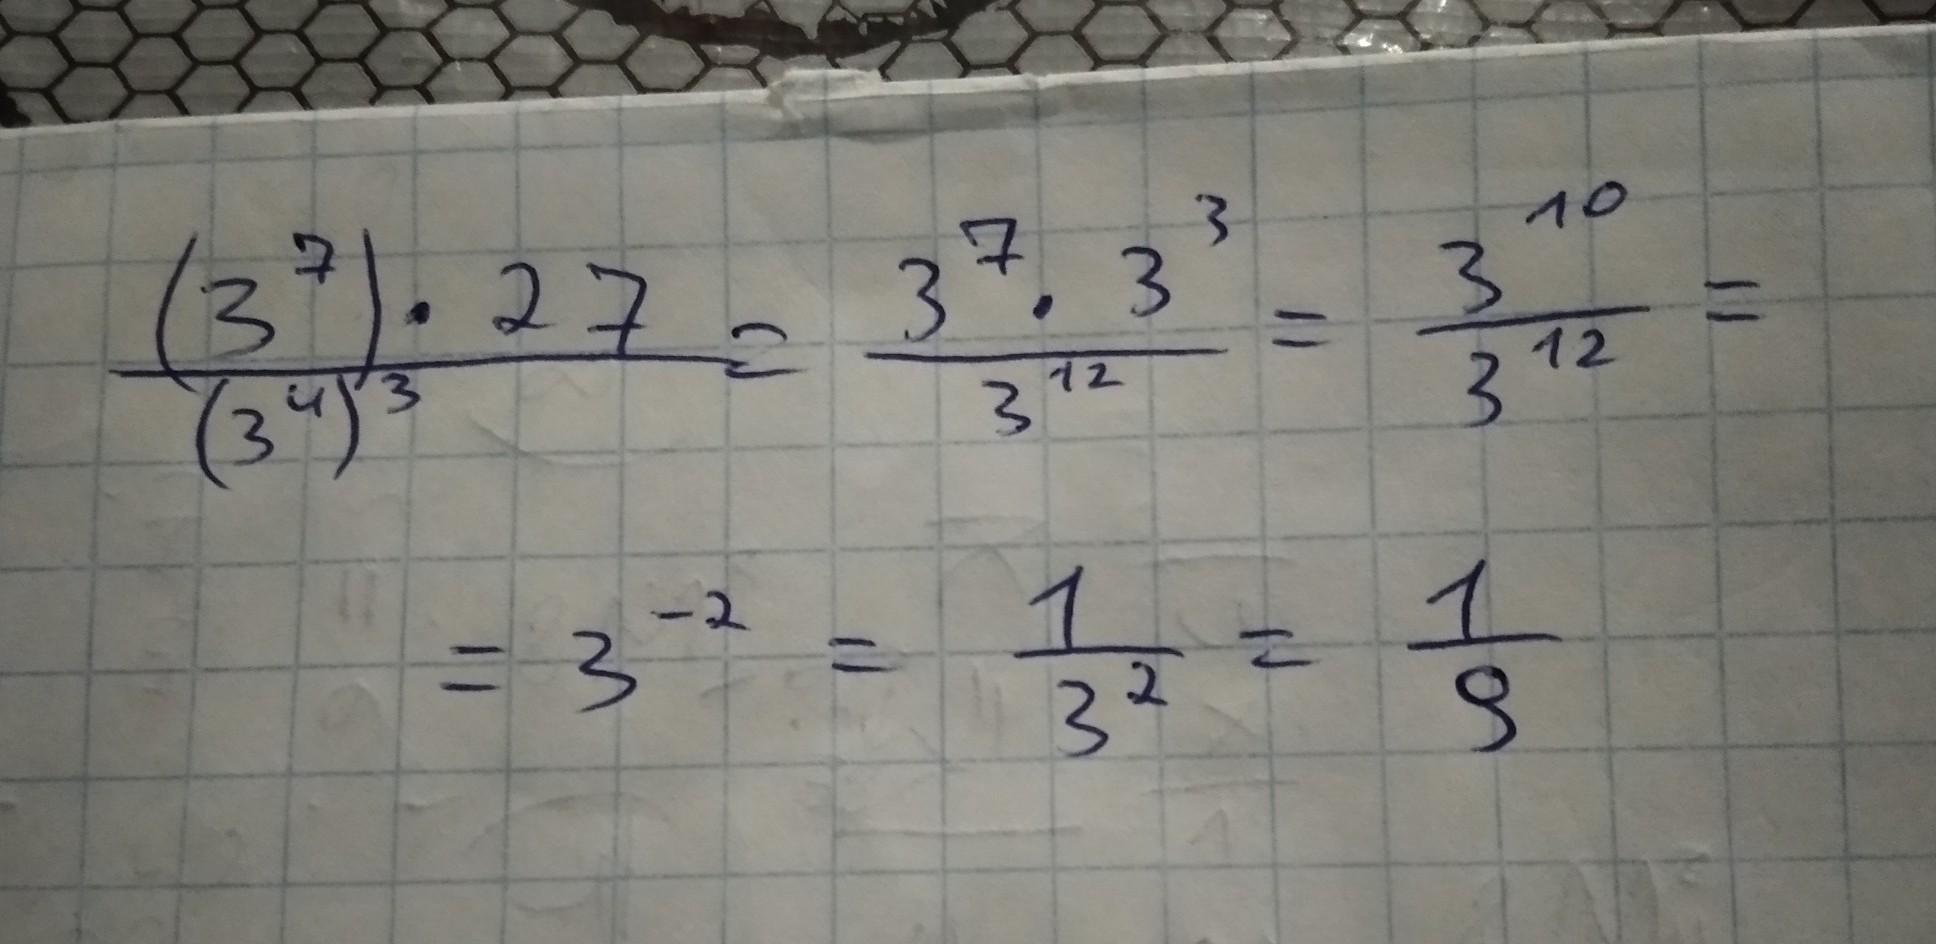 (3^7) · 27 / (3^4)^3 = 3^7 · 3^3 / 3^12 = 3^10 / 3^12 =
= 3^-2 = 1 / 3^2 = 1 / 9